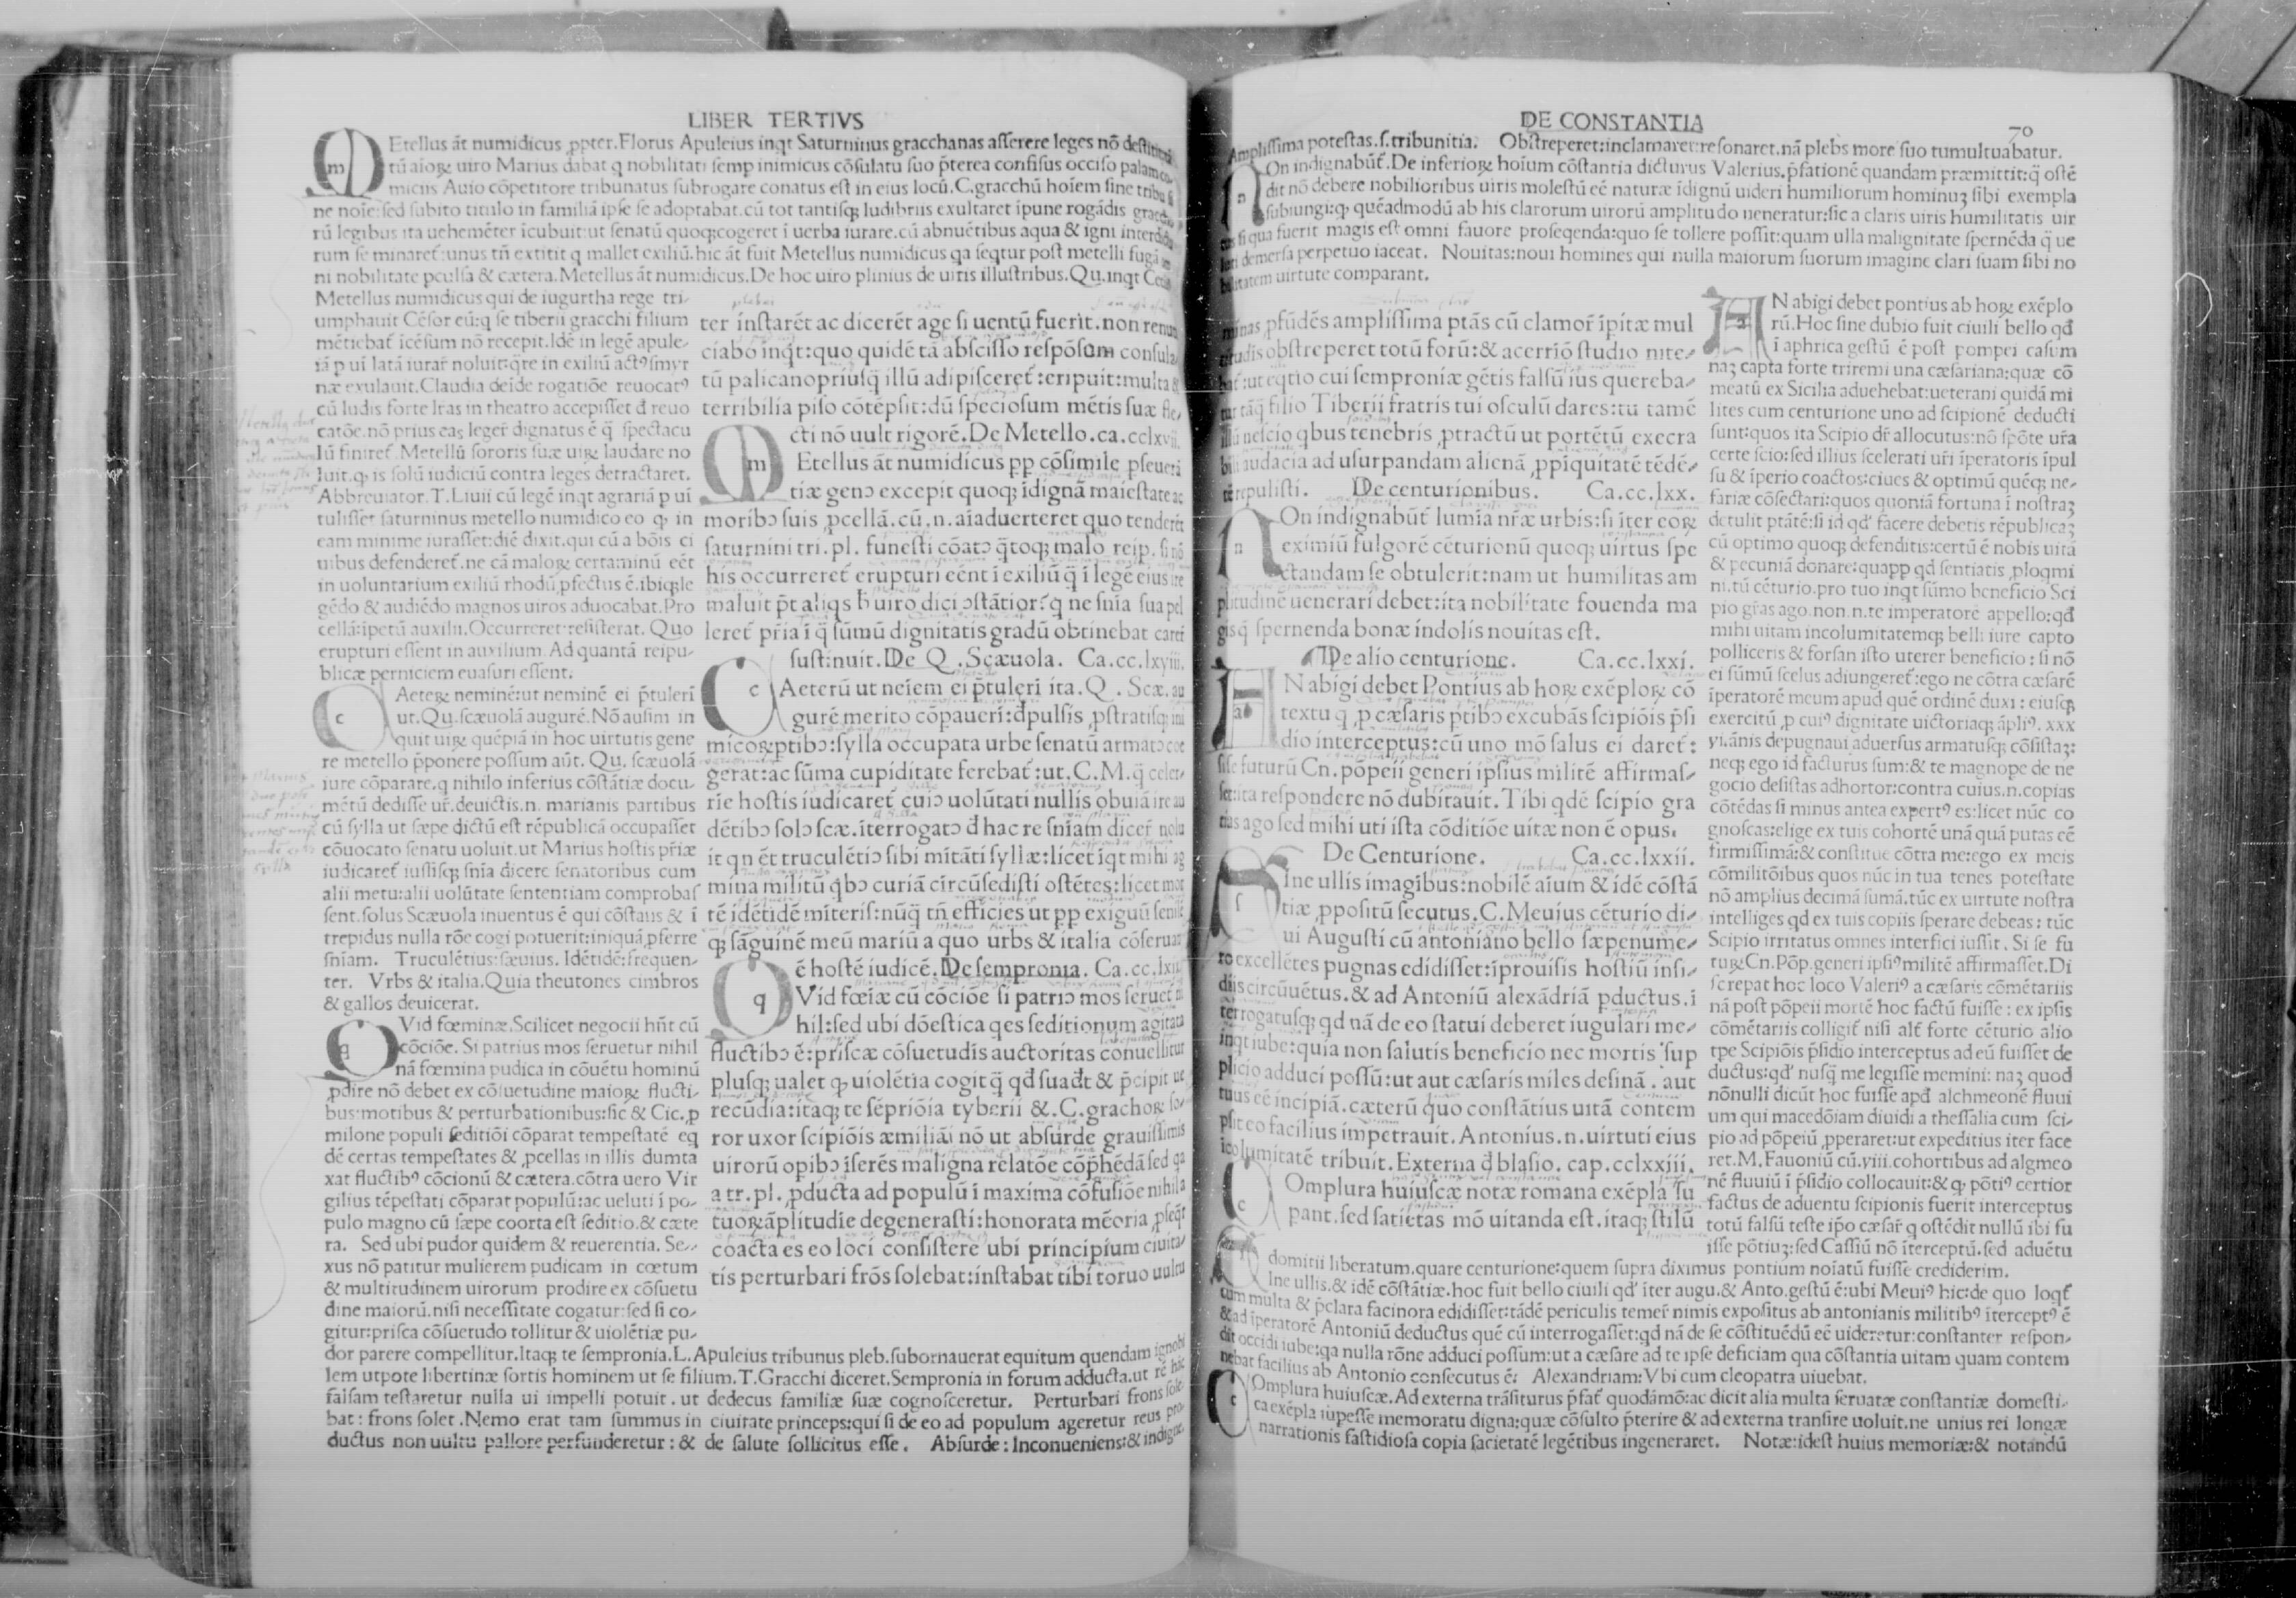 LIBER TERTIVS
Etellus āt numidicus ꝓpter. Florus Apuleius inqt Saturninus gracchanas asserere leges nō
tū aioꝝ uiro Marius dabat q nobilitati semp inimicus cōsulatu suo p̄terea confisus occiso palam
miciis Auio cōpetitore tribunatus subrogare conatus est in eius locū. C. gracchū hoīem sine tribu
ne noīe: sed subito titulo in familiā ipse se adoptabat. cū tot tantisq; ludibriis exultaret īpune rogādis
rū legibus ita uehemēter īcubuit: ut senatū quoq; cogeret ī uerba iurare. cū abnuētibus aqua & igni
rum se minaret̄: unus tn̄ extitit q mallet exiliū. hic āt fuit Metellus numidicus qa seqtur post metelli fugā
ni nobilitate pculsa & cætera. Metellus āt numidicus. De hoc uiro plinius de uiris illustribus. Qu. inqt
Metellus numidicus qui de iugurtha rege tri-
umphauit Cēsor eū: q se tiberii gracchi filium
mētiebat̄ īcēsum nō recepit. Idē in legē apule-
iā p ui latā iurar̄ noluit: q̄re in exiliū actꝰ smyr
næ exulauit. Claudia deīde rogatiōe reuocatꝰ
cū ludis forte lr̄as in theatro accepisset đ reuo
catōe. nō prius eas leger̄ dignatus ē q̄ spectacu
lū finiret̄. Metellū sororis suæ uiꝝ laudare no
luit. ꝙ is solū iudiciū contra leges detractaret.
Abbreuiator. T. Liuii cū legē inqt agrariā p ui
tulisset saturninus metello numidico eo ꝙ in
eam minime iurasset: diē dixit. qui cū a bōis ci
uibus defenderet̄. ne cā maloꝝ certaminū eēt
in uoluntarium exiliū rhodū ꝓfectus ē. ibiq; le
gēdo & audiēdo magnos uiros aduocabat. Pro
cellā: īpetū auxilii. Occurreret: resisterat. Quo
erupturi essent in auxilium. Ad quantā reipu-
blicæ perniciem euasuri essent.
Aeteꝝ neminē: ut neminē ei p̄tulerī
ut. Qu. scæuolā augurē. Nō ausim in
quit uiꝝ quēpiā in hoc uirtutis gene
re metello p̄ponere possum aūt. Qu. scæuolā
iure cōparare. q nihilo inferius cōstātiæ docu-
mētū dedisse ur̄. deuictis. n. marianis partibus
cū sylla ut sæpe dictū est rēpublicā occupasset
cōuocato senatu uoluit. ut Marius hostis pr̄iæ
iudicaret̄ iussisq; sn̄ia dicere senatoribus cum
alii metu: alii uolūtate sententiam comprobas
sent. solus Scæuola inuentus ē qui cōstans & ī
trepidus nulla rōe cogi potuerit: iniquā ꝓferre
sn̄iam. Truculētius: sæuius. Idētidē: frequen-
ter. Vrbs & italia. Quia theutones cimbros
& gallos deuicerat.
Vid fœminæ. Scilicet negocii hn̄t cū
cōciōe. Si patrius mos seruetur nihil
nā fœmina pudica in cōuētu hominū
ꝓdire nō debet ex cōsuetudine maioꝝ flucti-
bus: motibus & perturbationibus: sic & Cic. ꝓ
milone populi seditiōi cōparat tempestatē eq
dē certas tempestates & ꝓcellas in illis dumta
xat fluctibꝰ cōcionū & cætera. cōtra uero Vir
gilius tēpestati cōparat populū: ac ueluti ī po-
pulo magno cū sæpe coorta est seditio. & cæte
ra. Sed ubi pudor quidem & reuerentia. Se-
xus nō patitur mulierem pudicam in cœtum
& multitudinem uirorum prodire ex cōsuetu
dine maiorū. nisi necessitate cogatur: sed si co-
gitur: prisca cōsuetudo tollitur & uiolētiæ pu-
dor parere compellitur. Itaq; te sempronia. L. Apuleius tribunus pleb. subornauerat equitum quendam ignobi
lem utpote libertinæ sortis hominem ut se filium. T. Gracchi diceret. Sempronia in forum adducta. ut rē hāc
falsam testaretur nulla ui impelli potuit. ut dedecus familiæ suæ cognosceretur. Perturbari frons sole-
bat: frons solet. Nemo erat tam summus in ciuitate princeps: qui si de eo ad populum ageretur reus pro-
ductus non uultu pallore perfunderetur: & de salute sollicitus esse. Absurde: Inconueniens: & indigne.
ter īnstarēt ac dicerēt age si uentū fuerit. non renun
ciabo inq̄t: quo quidē tā abscisso respōsum consula
tū palicano priusq̄ illū adipisceret̄: eripuit: multa &
terribilia piso cōtēpsit: dū speciosum mētis suæ fle-
cti nō uult rigorē. De Metello. ca. cclxvii.
Etellus āt numidicus pp cōsimile pseuerā
tiæ genꝰ excepit quoq; īdignā maiestate ac
moribꝰ suis ꝓcellā. cū. n. aīaduerteret quo tenderēt
saturnini tri. pl. funesti cōatꝰ q̄toq; malo reip. si nō
his occurreret̄ erupturi eēnt ī exiliū q̄ ī legē eius ire
maluit p̄t aliqs h̄ uiro dici ꝯstātior: q ne sn̄ia sua pel
leret̄ pr̄ia ī q̄ sūmū dignitatis gradū obtinebat carei
sustinuit. De Q. Scæuola. Ca. cc. lxviii.
Aeterū ut neīem ei p̄tulerī ita. Q. Scæ. au
gurē merito cōpauerī: đpulsis ꝓstratisq; ini
micoꝝ ptibꝰ: sylla occupata urbe senatū armatꝰ coe
gerat: ac sūma cupiditate ferebat̄: ut. C. M. q̄ celer-
rie hostis iudicaret̄ cuiꝰ uolūtati nullis obuiā ire au
dētibꝰ solꝰ scæ. īterrogatꝰ đ hac re sn̄iam dicer̄ nolu
it qn ēt truculētiꝰ sibi mītāti syllæ: licet iqt mihi ag
mina militū qbꝰ curiā circūsedisti ostētes: licet mor
tē idētidē miteris: nūq̄ tn̄ efficies ut pp exiguū senile
q; sāguinē meū mariū a quo urbs & italia cōseruat
ē hostē iudicē. De sempronia. Ca. cc. lxix.
Vid fœīæ cū cōciōe si patriꝰ mos seruet̄ ni
hil: sed ubi dōestica qes seditionum agitata
fluctibꝰ ē: priscæ cōsuetudis auctoritas conuellitur
plusq; ualet ꝙ uiolētia cogit q̄ qđ suadt̄ & p̄cipit ue
recūdia: itaq; te sēpriōia tyberii &. C. grachoꝝ so-
ror uxor scipiōis æmiliāi nō ut absurde grauissimis
uirorū opibꝰ īserēs maligna relatōe cōp̄hēdā sed qa
a tr. pl. ꝓducta ad populū ī maxima cōfusiōe nihil a
tuoꝝ āplitudie degenerasti: honorata mēoria ꝓseq̄t
coacta es eo loci consistere ubi principium ciuita-
tis perturbari frōs solebat: instabat tibi toruo uultu
DE CONSTANTIA
70
Amplissima potestas. s. tribunitia. Obstreperet: inclamaret: resonaret. nā plebs more suo tumultuabatur.
On indignabūt̄. De inferioꝝ hoīum cōstantia dicturus Valerius. p̄fationē quandam præmittit: q̄ ostē
dit nō debere nobilioribus uiris molestū eē naturæ īdignū uideri humiliorum hominuꝫ sibi exempla
subiungi: ꝙ quēadmodū ab his clarorum uirorū amplitudo ueneratur: sic a claris uiris humilitatis uir
tus si qua fuerit magis est omni fauore proseqenda: quo se tollere possit: quam ulla malignitate spernēda q̄ ue
luti demersa perpetuo iaceat. Nouitas: noui homines qui nulla maiorum suorum imagine clari suam sibi no
bilitatem uirtute comparant.
minas ꝓfūdēs amplissima ptās cū clamor̄ īpitæ mul
titudis obstreperet totū forū: & acerriō studio nite-
bat̄: ut eqtio cui semproniæ gētis falsū ius quereba-
tur tāq̄ filio Tiberii fratris tui osculū dares: tu tamē
illū nescio qbus tenebris ꝓtractū ut portētū execra
bili audacia ad usurpandam alienā ꝓpīquitatē tēdē-
tē repulisti. De centurionibus. Ca. cc. lxx.
On indignabūt̄ lumīa nr̄æ urbis: si īter eoꝝ
eximiū fulgorē cēturionū quoq; uirtus spe
ctandam se obtulerit: nam ut humilitas am
plitudinē uenerari debet: ita nobilitate fouenda ma
gisq̄ spernenda bonæ indolis nouitas est.
De alio centurione. Ca. cc. lxxi.
N abigi debet Pontius ab hoꝝ exēploꝝ cō
textu q ꝓ cæsaris ptibꝰ excubās scipiōis p̄si
dio interceptus: cū uno mō salus ei daret̄:
si se futurū Cn. pōpeii generi ipsius militē affirmas-
set: ita respondere nō dubitauit. Tibi qdē scipio gra
tias ago sed mihi uti ista cōditiōe uitæ non ē opus.
De Centurione. Ca. cc. lxxii.
Ine ullis imagībus: nobilē aīum & idē cōstā
tiæ ꝓpositū secutus. C. Meuius cēturio di-
ui Augusti cū antoniano bello sæpenume-
ro excellētes pugnas edidisset: īprouisis hostiū insi-
diis circūuētus. & ad Antoniū alexādriā pductus. ī
terrogatusq; qd nā de eo statui deberet iugulari me-
inqt iube: quia non salutis beneficio nec mortis sup
plicio adduci possū: ut aut cæsaris miles desinā. aut
tuus eē incipiā. cæterū quo constātius uitā contem
psit eo facilius impetrauit. Antonius. n. uirtuti eius
icolumitatē tribuit. Externa đ blasio. cap. cclxxiii.
Omplura huiuscæ notæ romana exēpla su
pant. sed satietas mō uitanda est. itaq; stilū
N abigi debet pontius ab hoꝝ exēplo
rū. Hoc sine dubio fuit ciuili bello qđ
ī aphrica gestū ē post pompei casum
naꝫ capta forte triremi una cæsariana: quæ cō
meatū ex Sicilia aduehebat: ueterani quidā mi
lites cum centurione uno ad scipionē deducti
sunt: quos ita Scipio dr̄ allocutus: nō spōte ur̄a
certe scio: sed illius scelerati ur̄i īperatoris īpul
su & īperio coactos: ciues & optimū quēq; ne-
fariæ cōsectari: quos quoniā fortuna ī nostraꝫ
detulit ptātē: si id qđ facere debetis rēpublicaꝫ
cū optimo quoq; defenditis: certū ē nobis uitā
& pecuniā donare: quapp qđ sentiatis ꝓloqmi
ni. tū cēturio. pro tuo inqt sūmo beneficio Sci
pio gr̄as ago. non. n. te imperatorē appello: qđ
mihi uitam incolumitatemq; belli iure capto
polliceris & forsan isto uterer beneficio: si nō
ei sūmū scelus adiungeret̄: ego ne cōtra cæsarē
īperatorē meum apud quē ordinē duxi: eiusq;
exercitū ꝓ cuiꝰ dignitate uictoriaq; āpliꝰ. xxx
vi. ānis depugnaui aduersus armatusq; cōsistaꝫ:
neq; ego id facturus sum: & te magnope de ne
gocio desistas adhortor: contra cuius. n. copias
cōtēdas si minus antea expertꝰ es: licet nūc co
gnoscas: elige ex tuis cohortē unā quā putas eē
firmissimā: & constitue cōtra me: ego ex meis
cōmilitōibus quos nūc in tua tenes potestate
nō amplius decimā sumā. tūc ex uirtute nostra
intelliges qd ex tuis copiis sperare debeas: tūc
Scipio irritatus omnes interfici iussit. Si se fu
tuꝝ Cn. Pōp. generi ipsiꝰ militē affirmasset. Di
screpat hoc loco Valeriꝰ a cæsaris cōmētariis
nā post pōpeii mortē hoc factū fuisse: ex ipsis
cōmētariis colligit̄ nisi alt̄ forte cēturio alio
tpe Scipiōis p̄sidio interceptus ad eū fuisset de
ductus: qđ nusq̄ me legisse memini: naꝫ quod
nōnulli dicūt hoc fuisse apđ alchmeonē fluui
um qui macedōiam diuidi a thessalia cum sci-
pio ad pōpeiū ꝓperaret: ut expeditius iter face
ret. M. Fauoniū cū. viii. cohortibus ad algmeo
nē fluuiū ī p̄sidio collocauit: & ꝙ pōtiꝰ certior
factus de aduentu scipionis fuerit interceptus
totū falsū teste ip̄o cæsar̄ q ostēdit nullū ibi fu
isse pōtiuꝫ: sed Cassiū nō īterceptū. sed aduētu
domitii liberatum. quare centurione: quem supra diximus pontium noīatū fuisse crediderim.
Ine ullis. & idē cōstātiæ. hoc fuit bello ciuili qđ īter augu. & Anto. gestū ē: ubi Meuiꝰ hic: de quo loqt̄
cum multa & p̄clara facinora edidisset: tādē periculis temer̄ nimis expositus ab antonianis militibꝰ īterceptꝰ ē
& ad īperatorē Antoniū deductus quē cū interrogasset: qd nā de se cōstituēdū eē uideretur: constanter respon-
dit occidi iube: qa nulla rōne adduci possum: ut a cæsare ad te ipse deficiam qua cōstantia uitam quam contem
nebat facilius ab Antonio consecutus ē: Alexandriam: Vbi cum cleopatra uiuebat.
Omplura huiuscæ. Ad externa trāsiturus p̄fat̄ quodāmō: ac dicit alia multa seruatæ constantiæ domesti-
ca exēpla supesse memoratu digna: quæ cōsulto p̄terire & ad externa transire uoluit. ne unius rei longæ
narrationis fastidiosa copia sacietatē legētibus ingeneraret. Notæ: idest huius memoriæ: & notandū